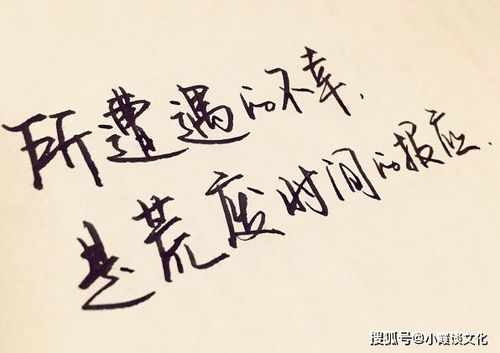 所遭遇的不幸,
是荒废时间的报应.
搜狐号@小霞谈文化